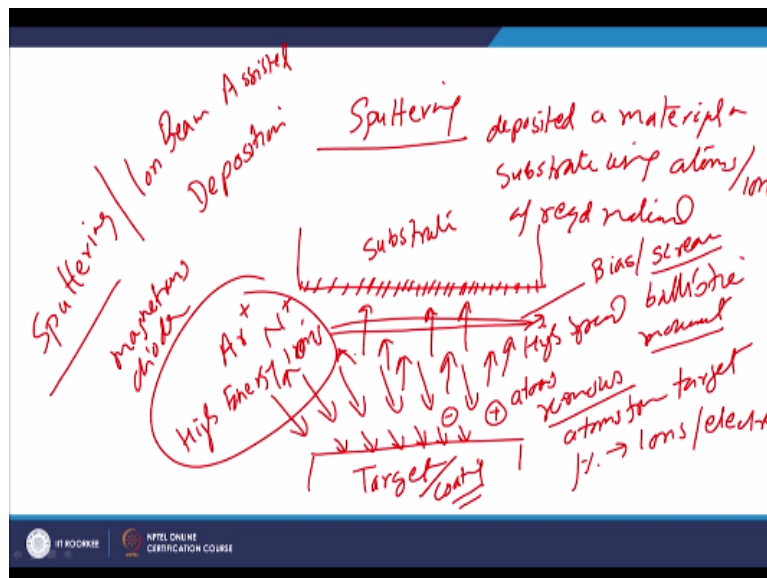 Sputtering / Ion Beam Assisted
Deposition
magnetron
diode
Sputtering
deposited a material
substrate using atoms/ion
of reqd material
substrate
Bias/screen
Ar+ N+
High Energy Ions
High speed ballistic
movement
atoms
removes
atoms from target
1% → Ions/electr
- +
Target/
coating
IIT ROORKEE
NPTEL ONLINE
CERTIFICATION COURSE